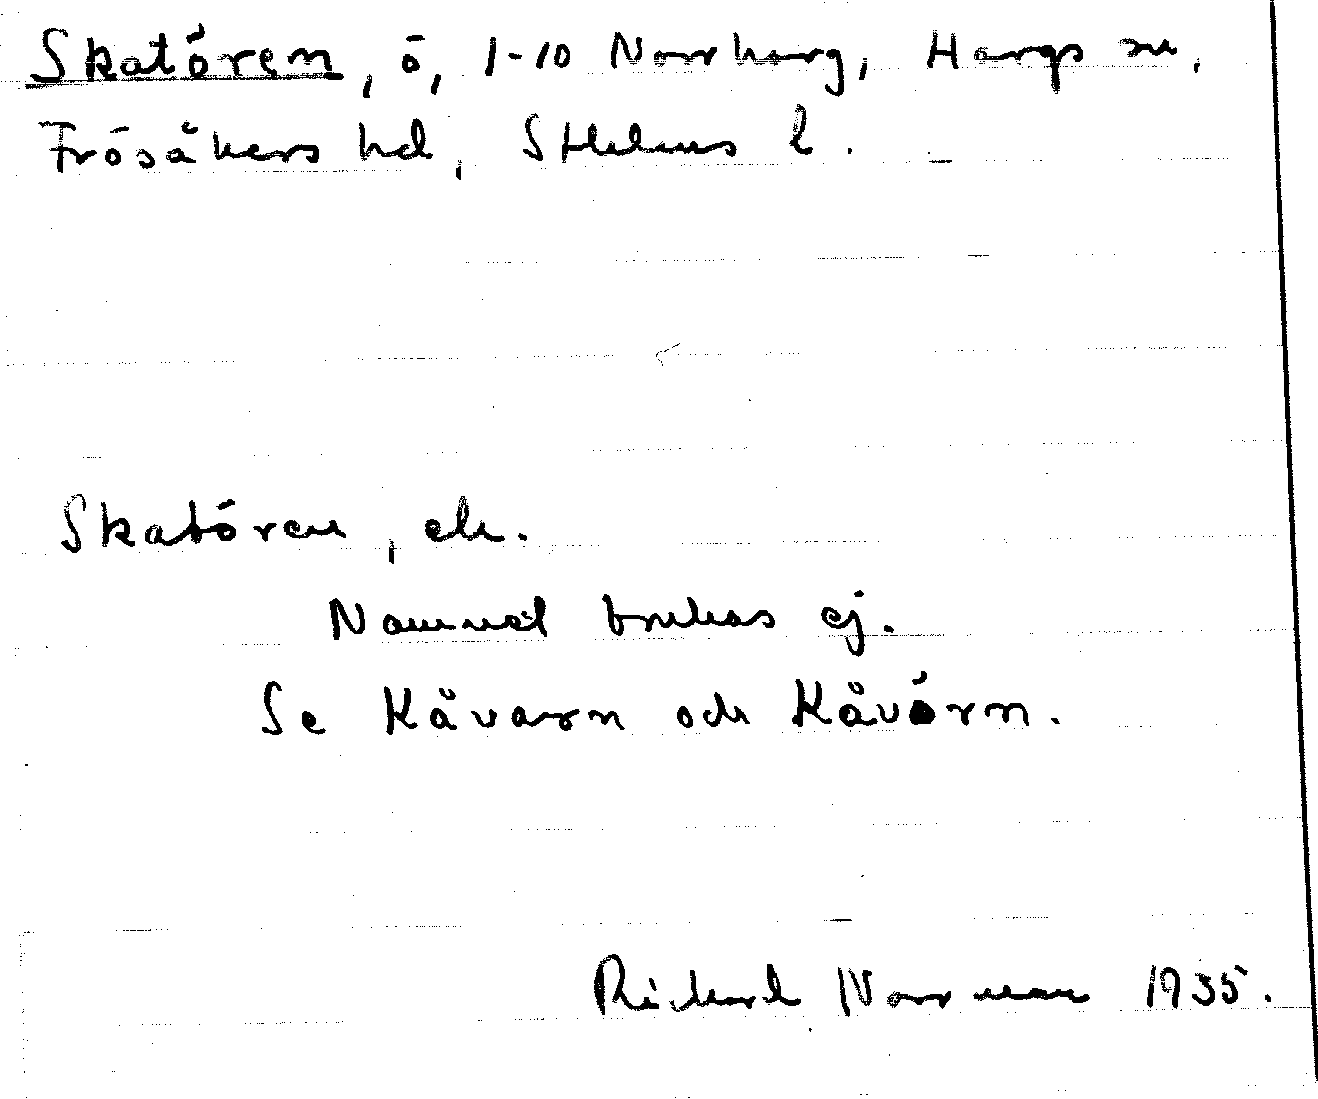 Skatören, ö, 1-10 Norrharg, Hargs sn,
Frösåkers hd, Sthlms l.
Skatören, ek.
Namnet brukas ej.
Se Kåvarn och Kåvörn.
Rickard Norrman 1935.